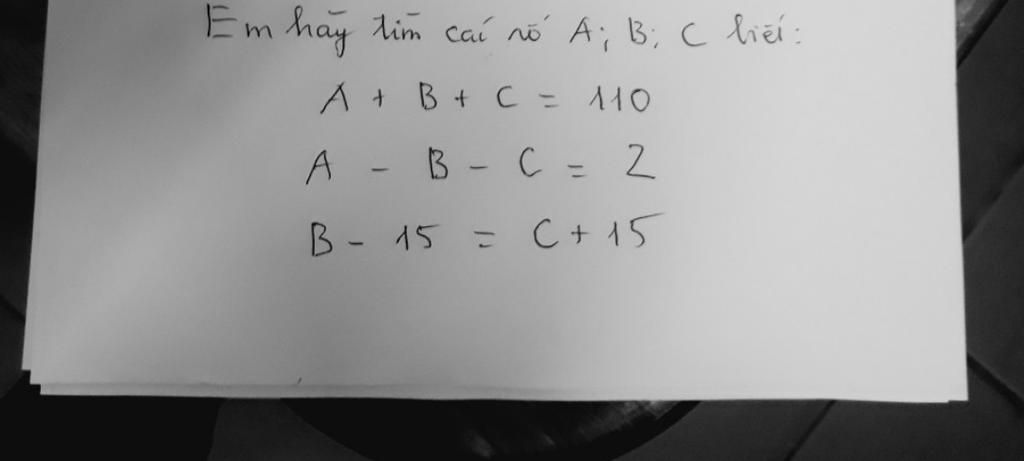 Em hãy tìm các số A; B; C biết:
A + B + C = 110
A - B - C = 2
B - 15 = C + 15